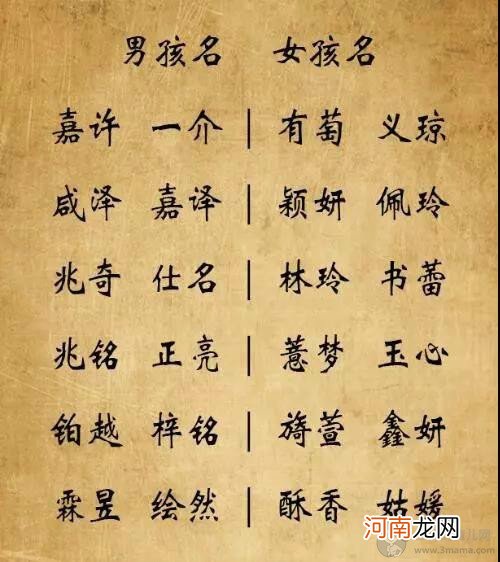 男孩名 女孩名
嘉许 一介 | 有萄 义琼
咸泽 嘉译 | 颖妍 佩玲
兆奇 仕名 | 林玲 书蕾
兆铭 正亮 | 薏梦 玉心
铂越 梓铭 | 旖萱 鑫妍
霖昱 绘然 | 酥香 姑媛
河南龙网
www.3mama.com